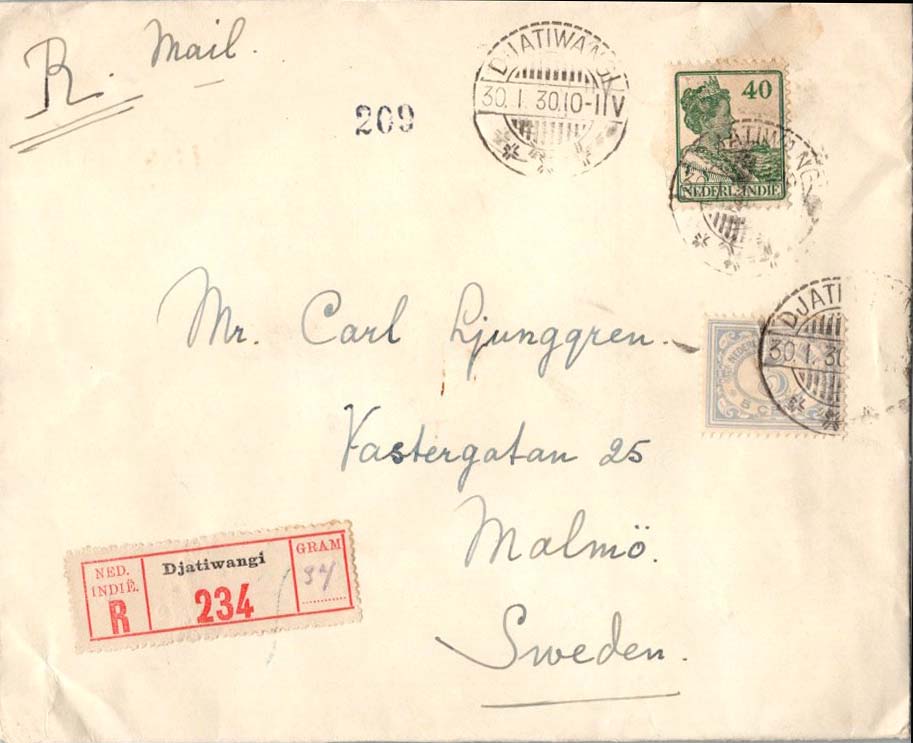 R. Mail.
209
DJATIWANGI
30. 1. 30.10-11V
40
NEDERL-INDIE
DJATIWANGI
Mr. Carl Ljunggren.
NEDERL
5 C
DJATI
30. 1. 30
Vastergatan 25
Malmö.
Sweden.
NED. INDIË.
R
Djatiwangi
234
GRAM